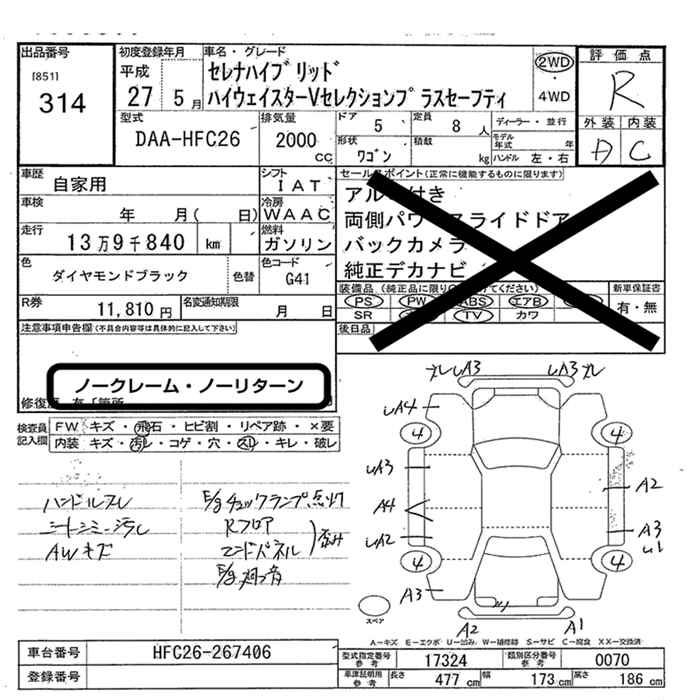 出品番号
[851]
314
初度登録年月
平成
27 5月
車名・グレード
セレナハイブリッド
ハイウェイスターVセレクションプラスセーフティ
2WD
4WD
評価点
R
外装 内装
A C
型式
DAA-HFC26
排気量
2000
cc
ドア
5
定員
8 人
形状
ワゴン
積載
kg
ディーラー・並行
モデル年式 年
ハンドル 左・右
車歴
自家用
シフト
IAT
車検
年 月( 日)
冷房
WAAC
走行
13万9千840 km
燃料
ガソリン
色
ダイヤモンドブラック
色替
色コード
G41
R券
11,810円
名変通知期限
月 日
セールスポイント(正常に機能するものに限ります)
アルミ付き
両側パワースライドドア
バックカメラ
純正デカナビ
新車保証書
有・無
PS PW ABS エアB
SR TV カワ
後日品
注意事項申告欄(不具合内容等は具体的に記入して下さい)
ノークレーム・ノーリターン
検査員記入欄
FW キズ・飛石・ヒビ割・リペア跡・×要
内装 キズ・汚れ・コゲ・穴・スレ・キレ・破レ
ハンドルスレ
シートシミー汚レ
AWキズ
E/gチェックランプ点灯
Rフロア
エンドパネル
歪み
E/g廻り音
UA3
UA3
UA4
4
4
UA3
A4
UA2
A2
A3
U1
4
4
A3
A2
A1
スペア
A－キズ E－エクボ U－凹み W－補修跡 S－サビ C－腐食 XX－交換済
車台番号
HFC26-267406
登録番号
型式指定番号 参考
17324
類別区分番号 参考
0070
車庫証明用 参考
長さ 477 cm
幅 173 cm
高さ 186 cm